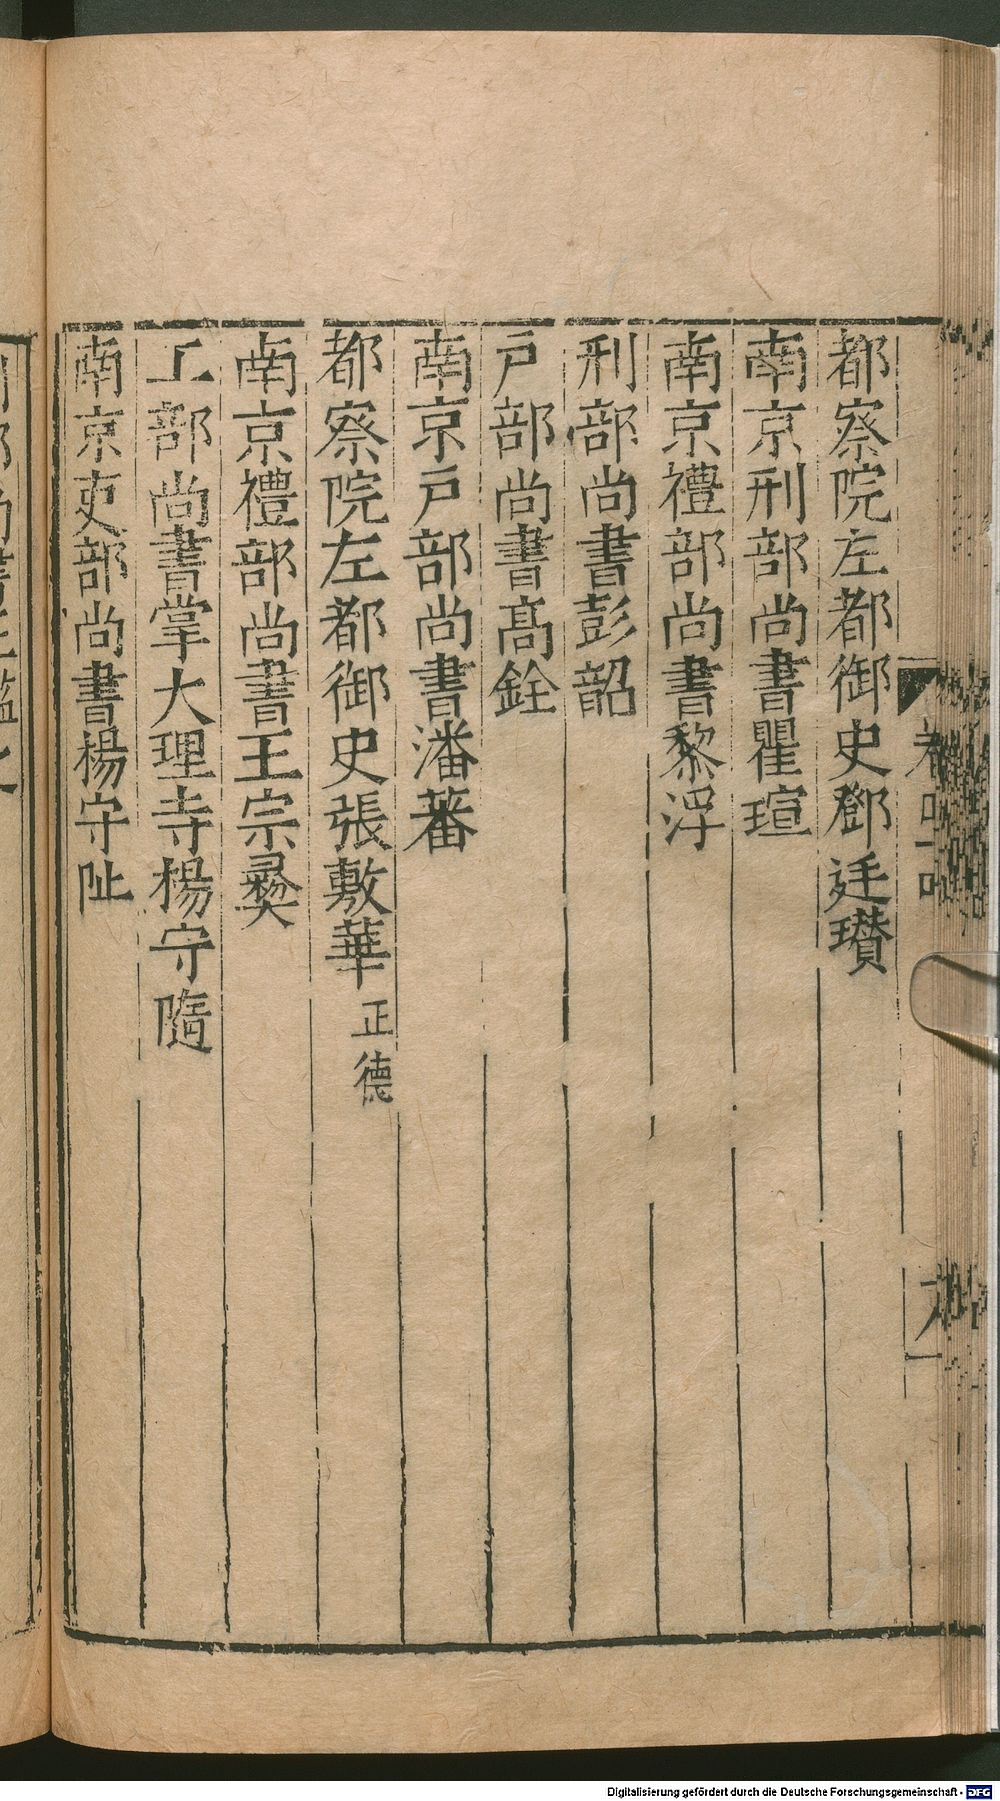 都察院左都御史鄧廷瓚
南京刑部尚書瞿瑄
南京禮部尚書黎浮
刑部尚書彭韶
戶部尚書高銓
南京戶部尚書潘蕃
都察院左都御史張敷華正德
南京禮部尚書王宗彜
工部尚書掌大理寺楊守隨
南京吏部尚書楊守阯
Digitalisierung gefördert durch die Deutsche Forschungsgemeinschaft - DFG